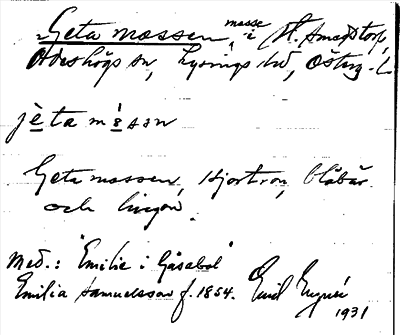 Geta mossen, mosse i St. Smedstorp,
Ödeshögs sn, Lysings hd, Östug. L.
jèta mássn
Geta mossen, Hjortron, blåbär
och lingon.
Med.: "Emilie i Gåsabol"
Emilia Samuelsson f. 1854. Emil
1931